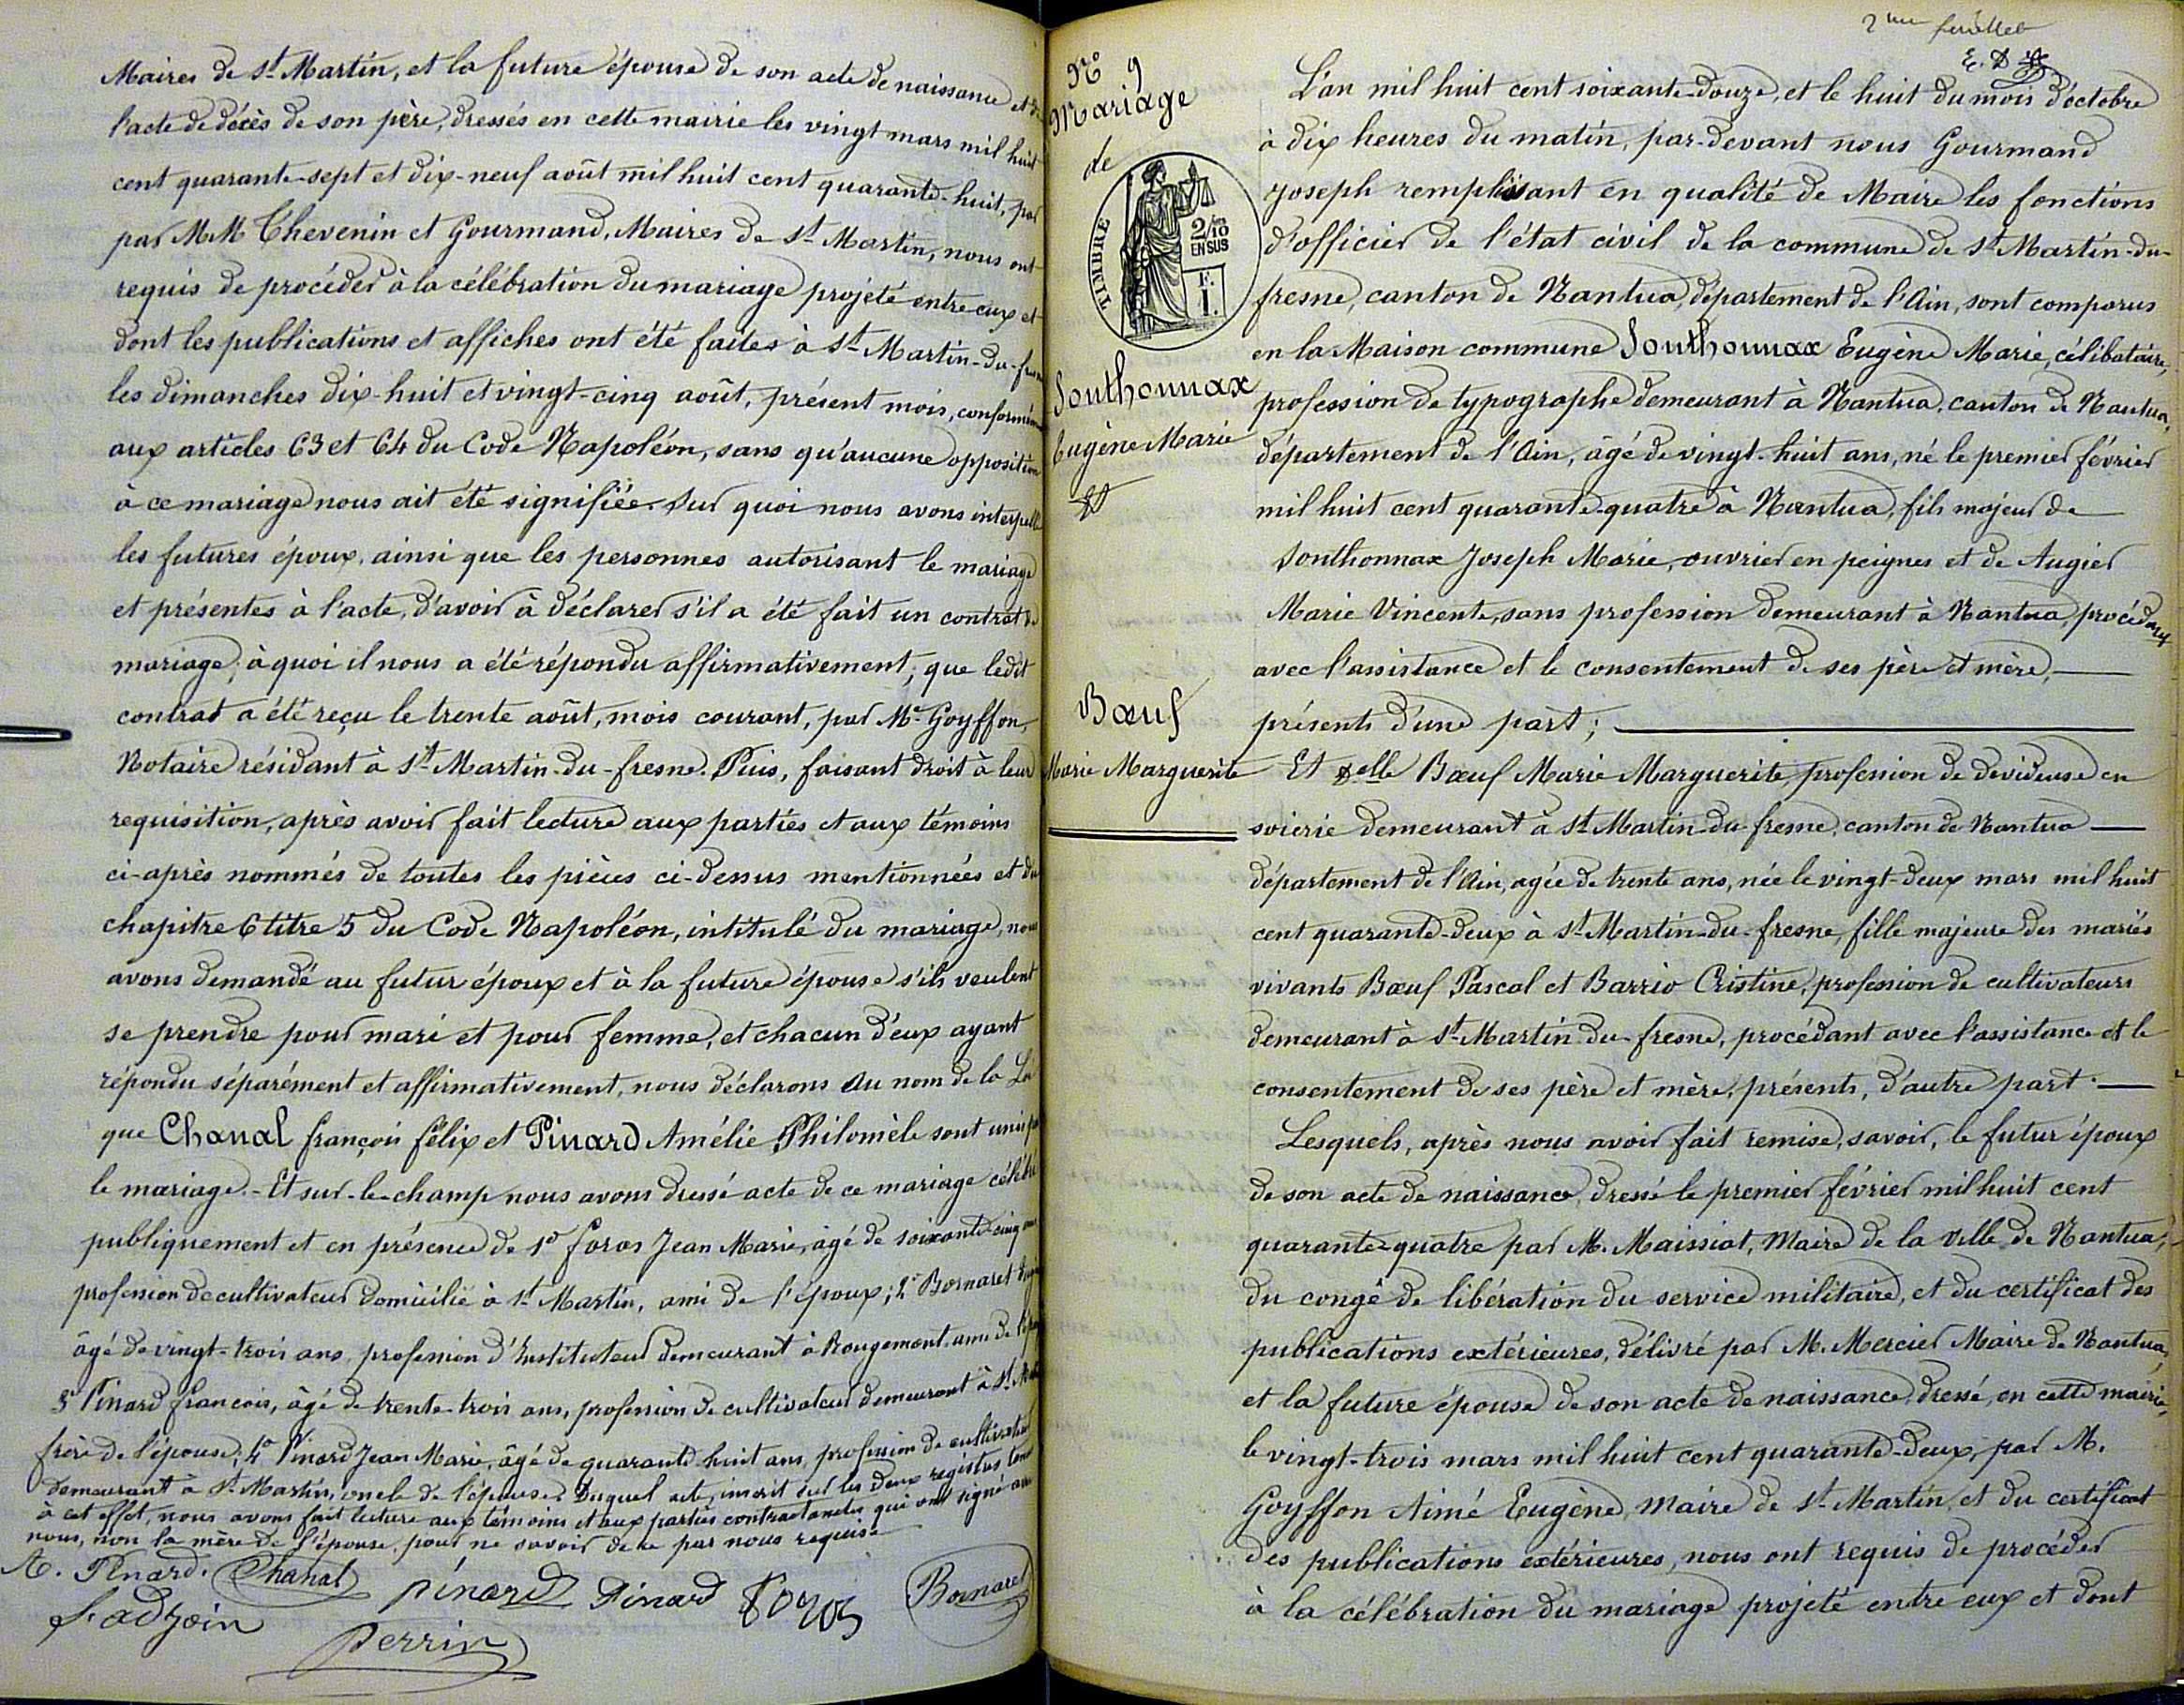 Maires de St Martin, et la future épouse de son acte de naissance et de
l'acte de décès de son père, dressés en cette mairie les vingt mars mil huit
cent quarante-sept et dix-neuf août mil huit cent quarante-huit, par
par MM Thevenin et Gourmand, Maires de St Martin, nous ont
requis de procéder à la célébration du mariage projeté entre eux et
dont les publications et affiches ont été faites à St Martin-du-fresne
les dimanches dix-huit et vingt-cinq août, présent mois, conformém
aux articles 63 et 64 du Code Napoléon, sans qu'aucune opposition
à ce mariage nous ait été signifiée. Sur quoi nous avons interpellé
les futures époux, ainsi que les personnes autorisant le mariage
et présentes à l'acte, d'avoir à déclarer s'il a été fait un contrat de
mariage; à quoi il nous a été répondu affirmativement; que ledit
contrat a été reçu le trente août, mois courant, par Me Goyffon,
Notaire résidant à St Martin-du-fresne. Puis, faisant droit à leur
requisition, après avoir fait lecture aux parties et aux témoins
ci-après nommés de toutes les pièces ci-dessus mentionnées et du
chapitre 6 titre 5 du Code Napoléon, intitulé du mariage, nous
avons demandé au futur époux et à la future épouse s'ils veulent
se prendre pour mari et pour femme, et chacun d'eux ayant
répondu séparément et affirmativement, nous déclarons au nom de la Loi
que Chanal françois félix et Pinard Amélie Philomèle sont unis par
le mariage. - Et sur-le-champ nous avons dressé acte de ce mariage célébré
publiquement et en présence de 1º foras Jean Marie, agé de soixante-cinq ans,
profession de cultivateur domicilié à St Martin, ami de l'époux; 2º Bornaret
âgé de vingt-trois ans, profession d'Instituteur demeurant à Rougemont, ami de l'époux
3º Pinard françois, âgé de trente-trois ans, profession de cultivateur demeurant à St Martin
frère de l'épouse; 4º Pinard Jean Marie, âgé de quarante-huit ans, profession de cultivateur
demeurant à St Martin, oncle de l'épouse. Duquel acte, inscrit sur les deux registres tenus
à cet effet, nous avons fait lecture aux témoins et aux parties contractantes qui ont signé avec
nous, non la mère de l'épouse, pour ne savoir de ce par nous requise
A. Pinard. Chanal pinard Pinard Foras Bornaret
Perrin
2me feuillet
Nº 9
Mariage
de
TIMBRE
2/10
EN SUS
F.
1.
Sonthonnax
Eugène Marie
Et
Bœuf
Marie Marguerite
L'an mil huit cent soixante-douze, et le huit du mois d'octobre
à dix heures du matin, par-devant nous Gourmand
Joseph remplissant en qualité de Maire les fonctions
d'officier de l'état civil de la commune de St Martin-du-
fresne, canton de Nantua, département de l'Ain, sont comparus
en la Maison commune Sonthonnax Eugène Marie, célibataire,
profession de typographe demeurant à Nantua, canton de Nantua,
département de l'Ain, âgé de vingt-huit ans, né le premier février
mil huit cent quarante-quatre à Nantua, fils majeur de
Sonthonnax Joseph Marie, ouvrier en peignes et de Augier
Marie Vincente, sans profession demeurant à Nantua, procédant
avec l'assistance et le consentement de ses père et mère,
présents d'une part;
Et Delle Bœuf Marie Marguerite, profession de devideuse en
soierie demeurant à St Martin-du-fresne, canton de Nantua
département de l'Ain, agée de trente ans, née le vingt-deux mars mil huit
cent quarante-deux à St Martin-du-fresne, fille majeure des mariés
vivants Bœuf Pascal et Barrio Cristine, profession de cultivateurs
demeurant à St Martin-du-fresne, procédant avec l'assistance et le
consentement de ses père et mère, présents, d'autre part.
Lesquels, après nous avoir fait remise, savoir, le futur époux
de son acte de naissance, dressé le premier février mil huit cent
quarante-quatre par M. Maissiat, Maire de la ville de Nantua;
du congé de libération du service militaire, et du certificat des
publications extérieures, délivré par M. Mercier Maire de Nantua,
et la future épouse de son acte de naissance, dressé, en cette mairie,
le vingt-trois mars mil huit cent quarante-deux, par M.
Goyffon Aimé Eugène, Maire de St Martin, et du certificat
des publications extérieures, nous ont requis de procéder
à la célébration du mariage projeté entre eux et dont